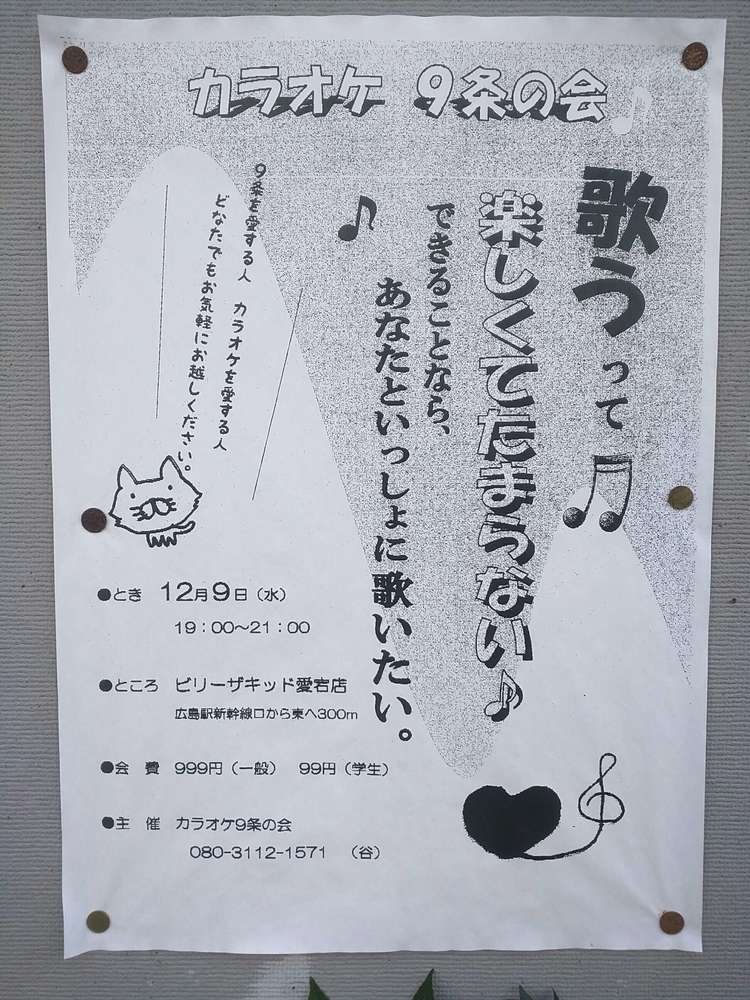 カラオケ 9条の会
歌うって
楽しくてたまらない
できることなら、
あなたといっしょに歌いたい。
9条を愛する人 カラオケを愛する人
どなたでもお気軽にお越しください。
●とき 12月9日（水）
19：00～21：00
●ところ ビリーザキッド愛宕店
広島駅新幹線口から東へ300m
●会 費 999円（一般） 99円（学生）
●主 催 カラオケ9条の会
080-3112-1571 （谷）